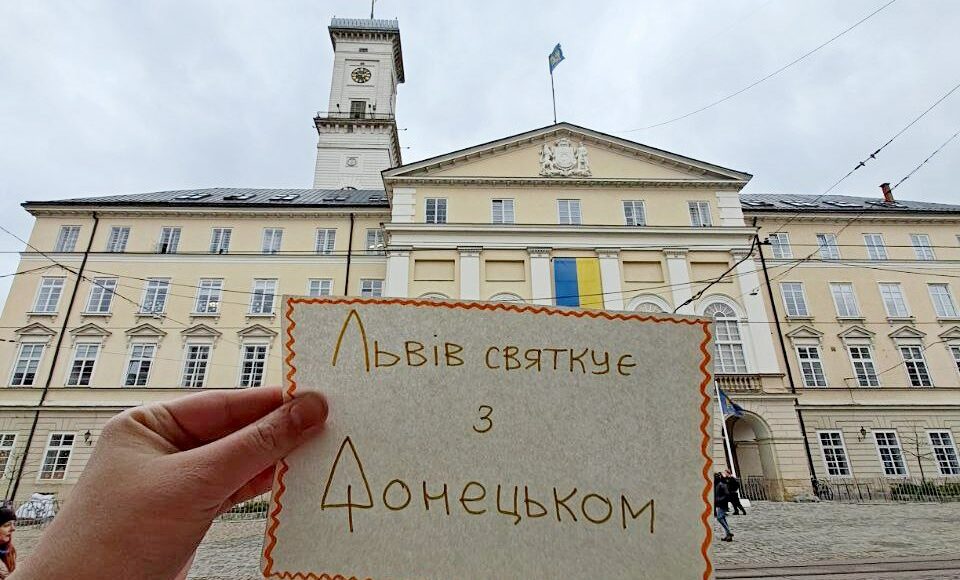 Львів святкує
з
Донецьком